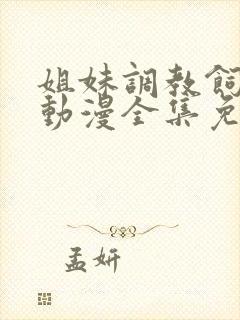 姐妹調教飼
動漫全集免
孟妍